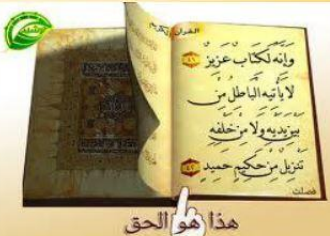 القرآن الكريم
وَإِنَّهُ لَكِتَابٌ عَزِيزٌ
٤١
لَا يَأْتِيهِ الْبَاطِلُ مِن
بَيْنِ يَدَيْهِ وَلَا مِنْ خَلْفِهِ
تَنزِيلٌ مِّنْ حَكِيمٍ حَمِيدٍ
٤٢
فصلت
هذا هو الحق